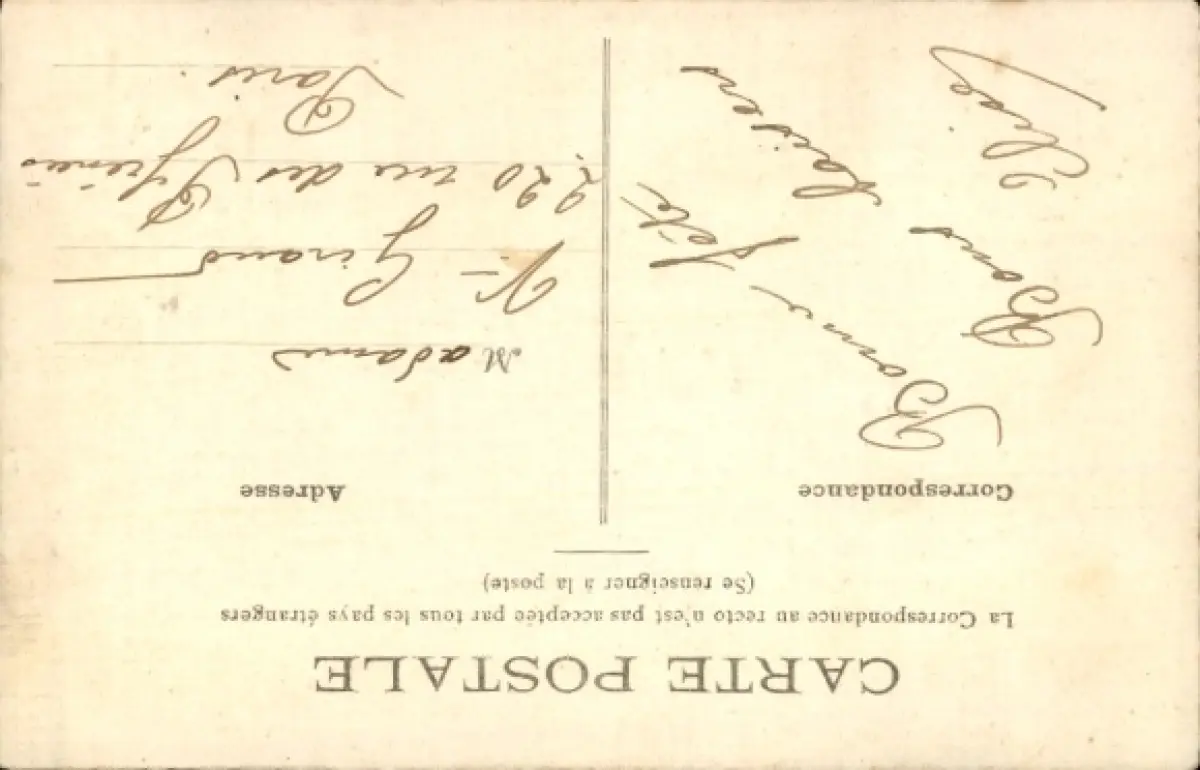 CARTE POSTALE
La Correspondance au recto n'est pas acceptée par tous les pays étrangers
(Se renseigner à la poste)
Correspondance
Bonne
fête
Bons
baisers
Adresse
Madame
Vve Giraud
220 rue des Pyrénées
Paris.